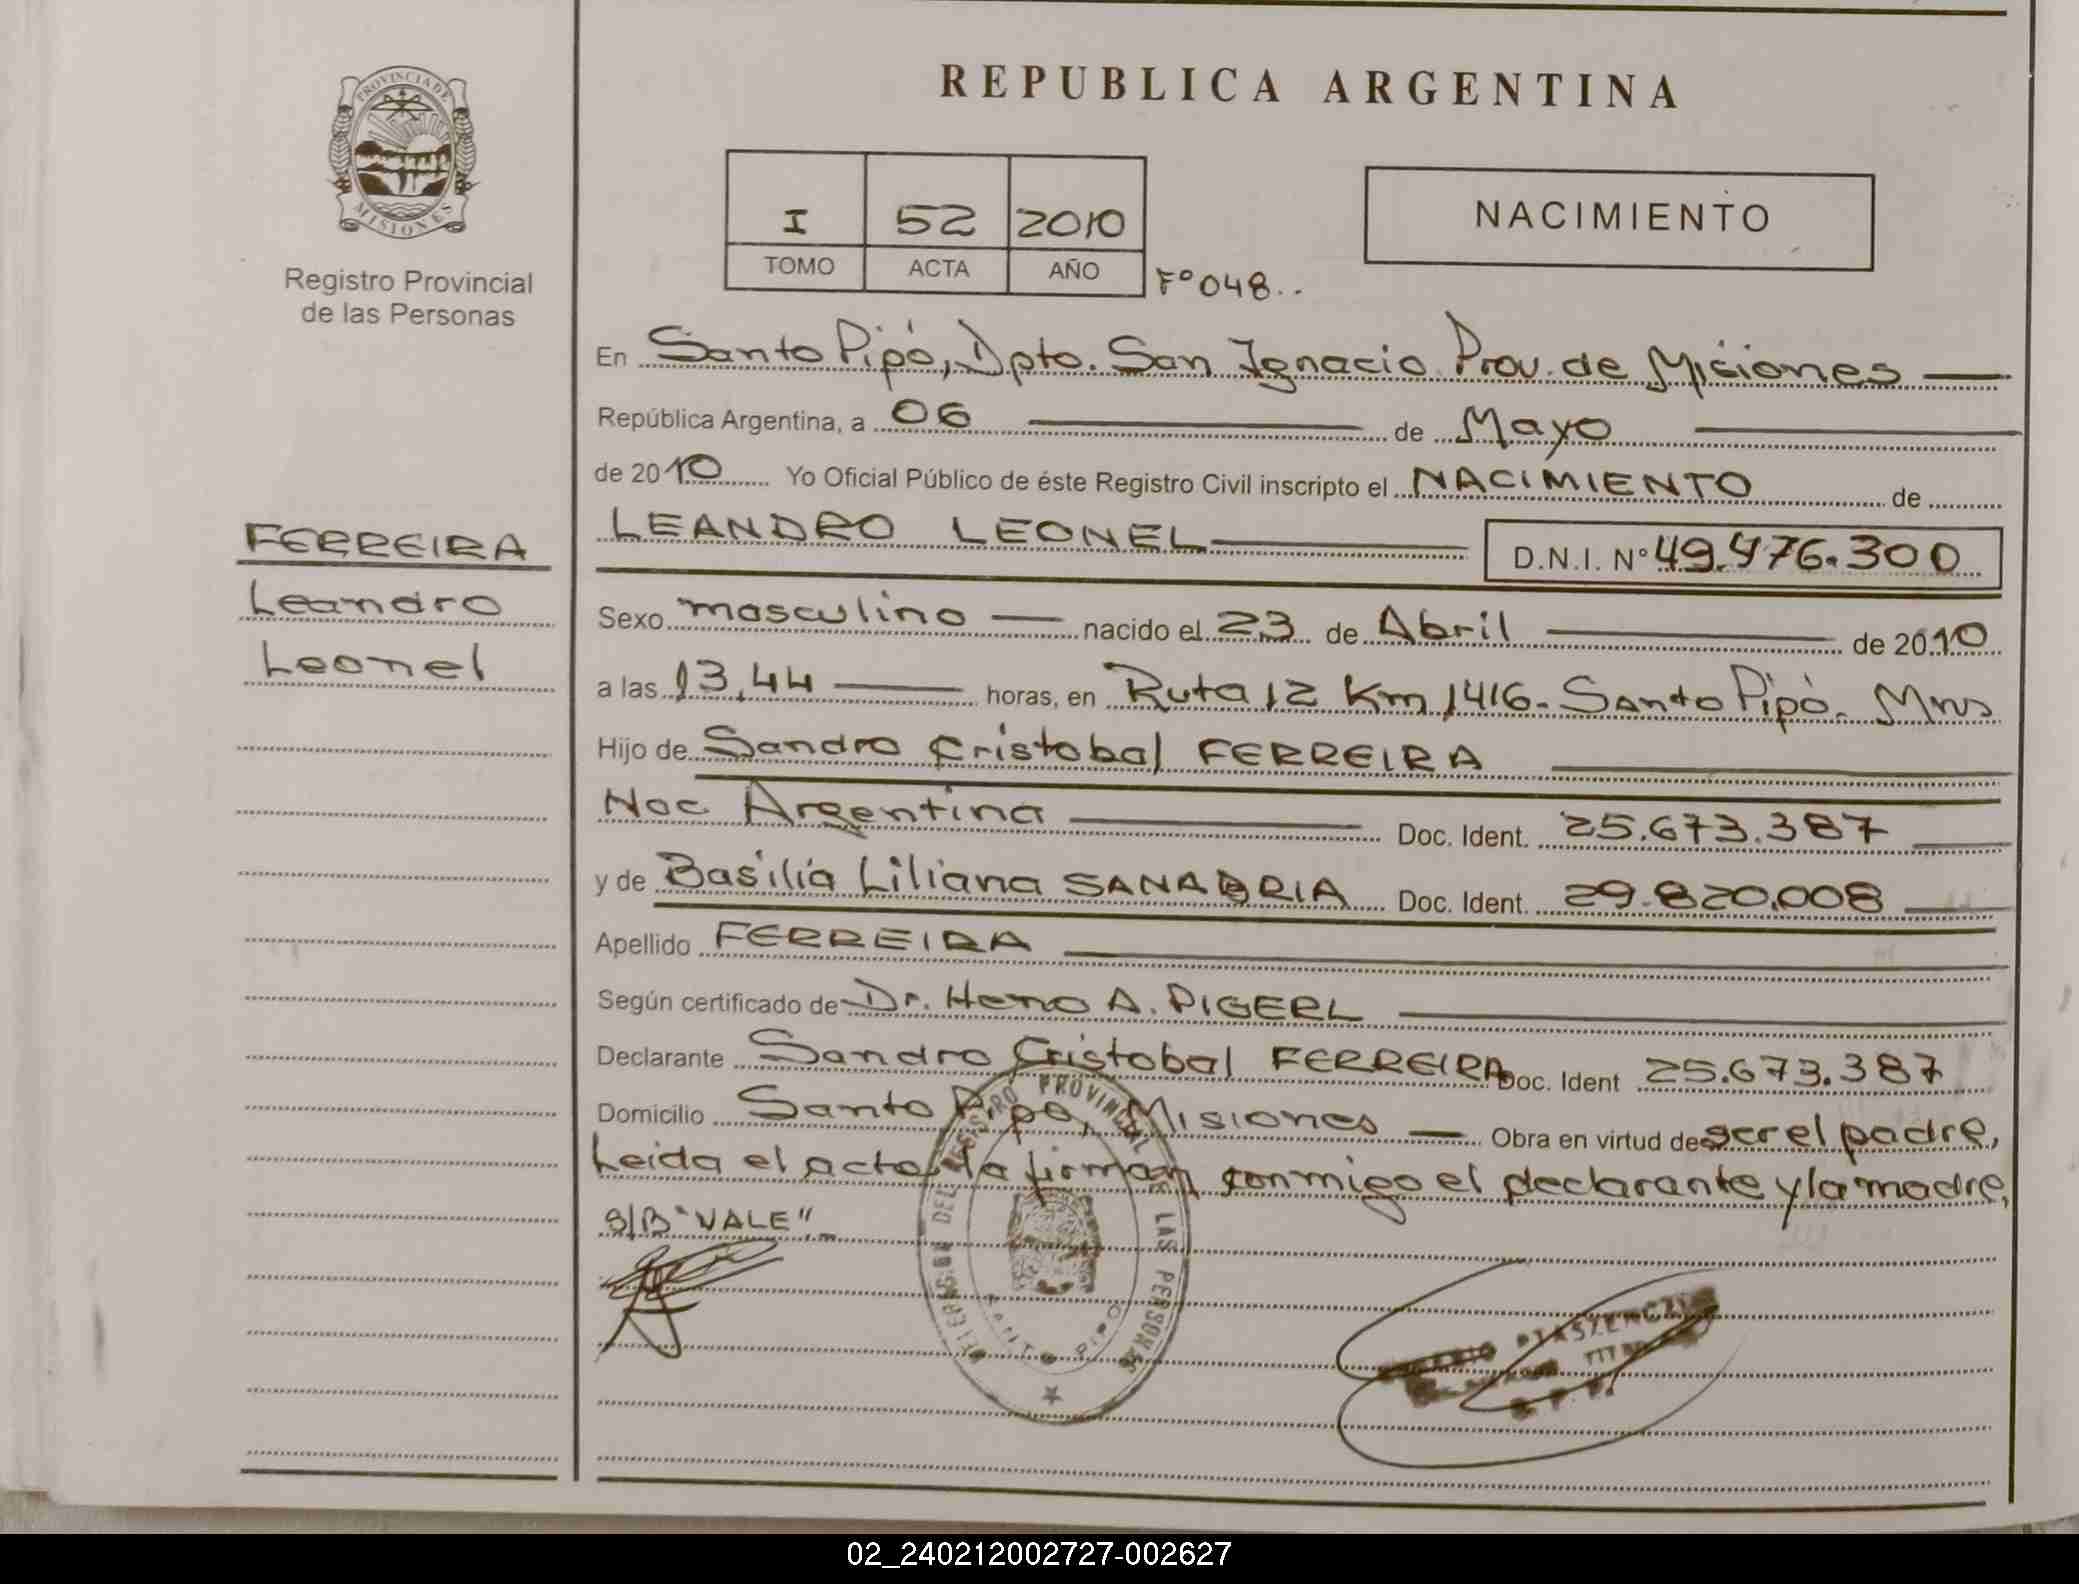 PROVINCIA DE
MISIONES
Registro Provincial
de las Personas
FERREIRA
Leandro
Leonel
REPUBLICA ARGENTINA
I 52 2010
TOMO ACTA AÑO
F° 048..
NACIMIENTO
En Santo Pipó, Dpto. San Ignacio Prov. de Misiones
República Argentina, a 06 de Mayo
de 2010 Yo Oficial Público de éste Registro Civil inscripto el NACIMIENTO de
LEANDRO LEONEL D.N.I. N° 49.476.300
Sexo masculino nacido el 23 de Abril de 2010
a las 13,44 horas, en Ruta 12 Km 1416. Santo Pipó. Mns
Hijo de Sandro Cristobal FERREIRA
Nac Argentina Doc. Ident. 25.673.387
y de Basilia Liliana SANABRIA Doc. Ident. 29.820.008
Apellido FERREIRA
Según certificado de Dr. A. PIGERL
Declarante Sandro Cristobal FERREIRA Doc. Ident 25.673.387
Domicilio Santo Pipó, Misiones Obra en virtud de ser el padre,
Leida el acta la firman conmigo el declarante y la madre,
S/B "VALE".-
DELEGACION DEL REGISTRO PROVINCIAL DE LAS PERSONAS
SANTO PIPO
TITULAR
R. P. P.
02_240212002727-002627